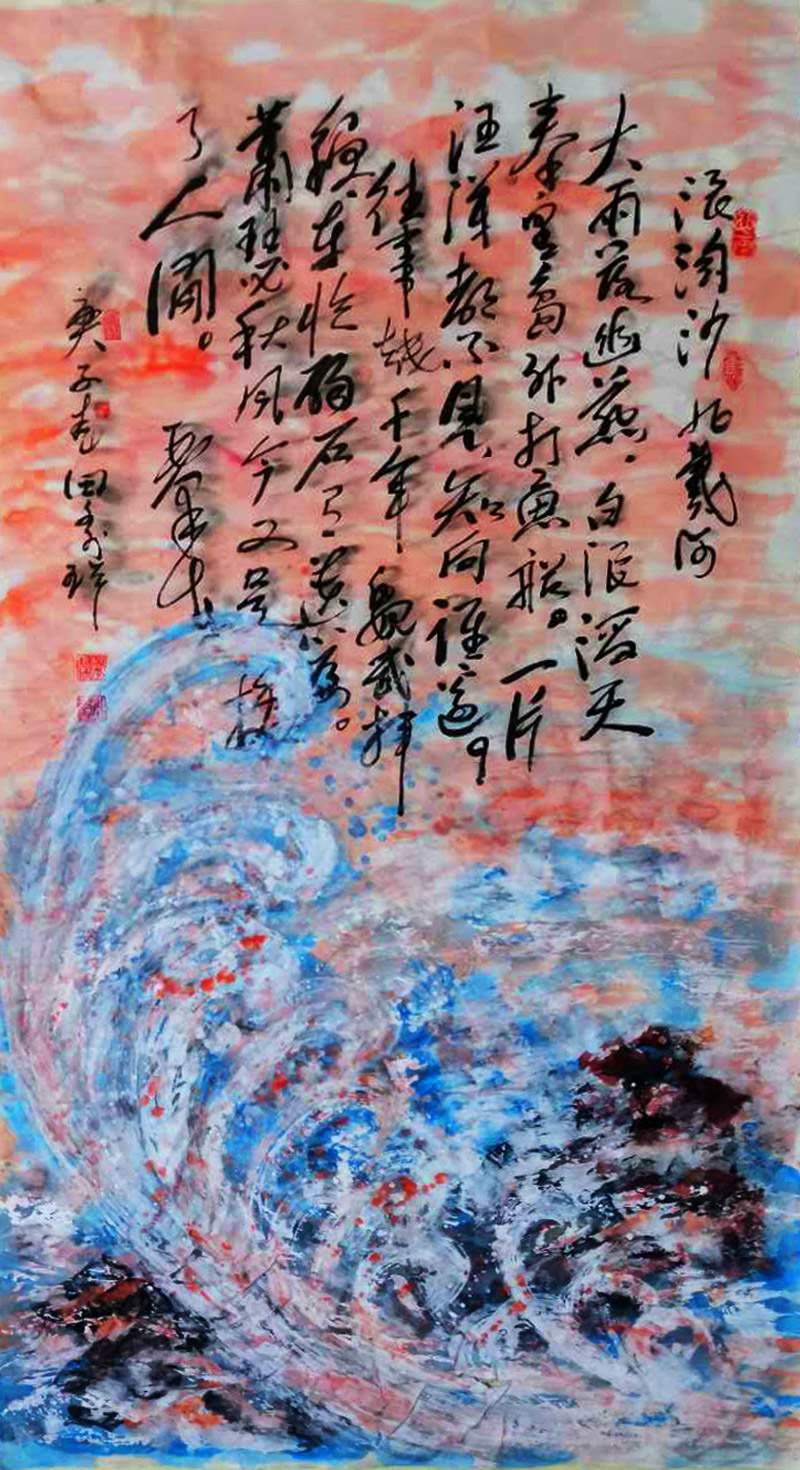 浪淘沙 北戴河
大雨落幽燕、白浪滔天
秦皇島外打魚船。一片
汪洋都不見、知向谁邊?
往事越千年 魏武挥
鞭、东临碣石有遗篇。
萧瑟秋风今又是 换
了人间。
庚子春田